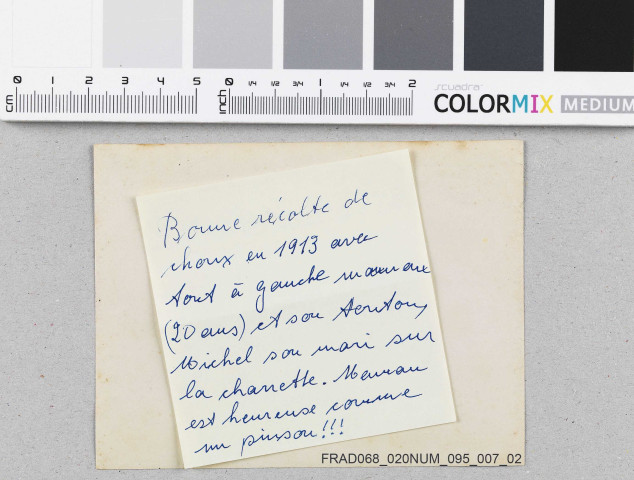 0 1 2 3 4 5
cm
0 1/4 1/2 3/4 1 1/4 1/2 3/4 2
inch
scuadra
COLORMIX MEDIUM
Bonne récolte de
choux en 1913 avec
tout à gauche maman
(20 ans) et son
Michel son mari sur
la charrette. Maman
est heureuse comme
un pinson!!!
FRAD068_020NUM_095_007_02